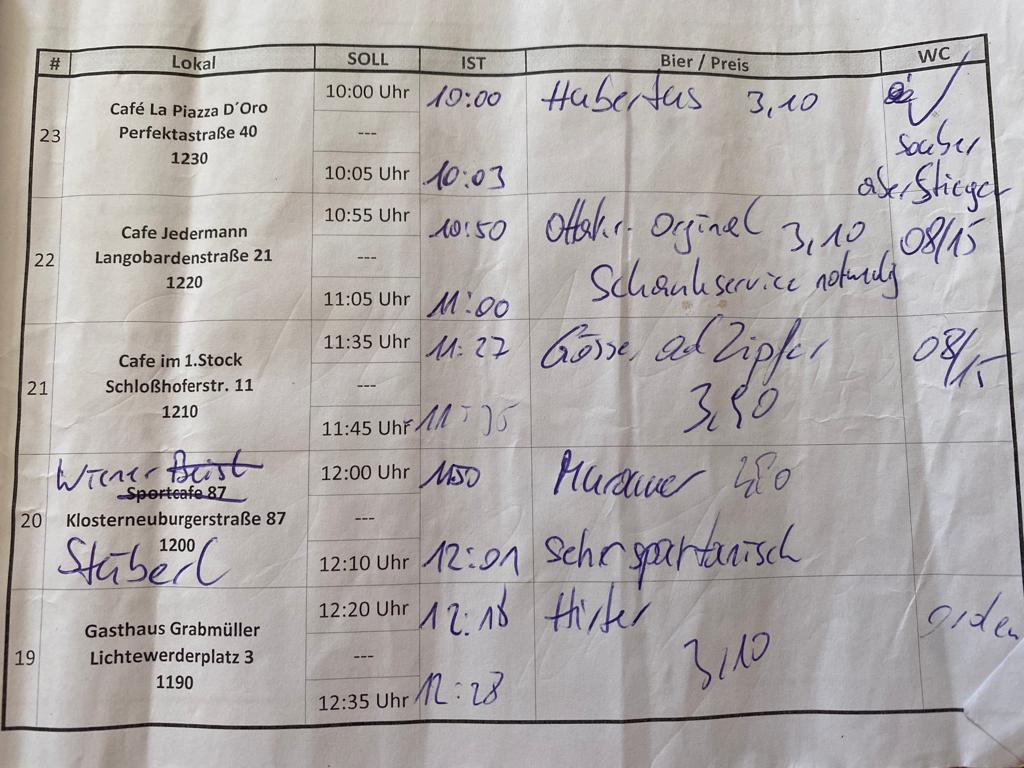 # Lokal SOLL IST Bier / Preis WC
10:00 Uhr 10:00 Hubertus 3,10
Café La Piazza D´Oro
23 Perfektastraße 40 ---
1230 sauber
10:05 Uhr 10:03 aber Stiege
10:55 Uhr 10:50 Ottakr. Orginal 3,10 08/15
Cafe Jedermann
22 Langobardenstraße 21 ---
1220 Schankservice notwendig
11:05 Uhr 11:00
11:35 Uhr 11:27 Gösser ad Zipfer 08/15
Cafe im 1.Stock
21 Schloßhoferstr. 11 ---
1210 3,90
11:45 Uhr 11:35
Wiener Beisl 12:00 Uhr 1150 Murauer
Sportcafe 87
20 Klosterneuburgerstraße 87 ---
1200
Stüberl 12:10 Uhr 12:01 sehr spartanisch
12:20 Uhr 12:18 Hirter orden
Gasthaus Grabmüller
19 Lichtewerderplatz 3 --- 3,10
1190
12:35 Uhr 12:28